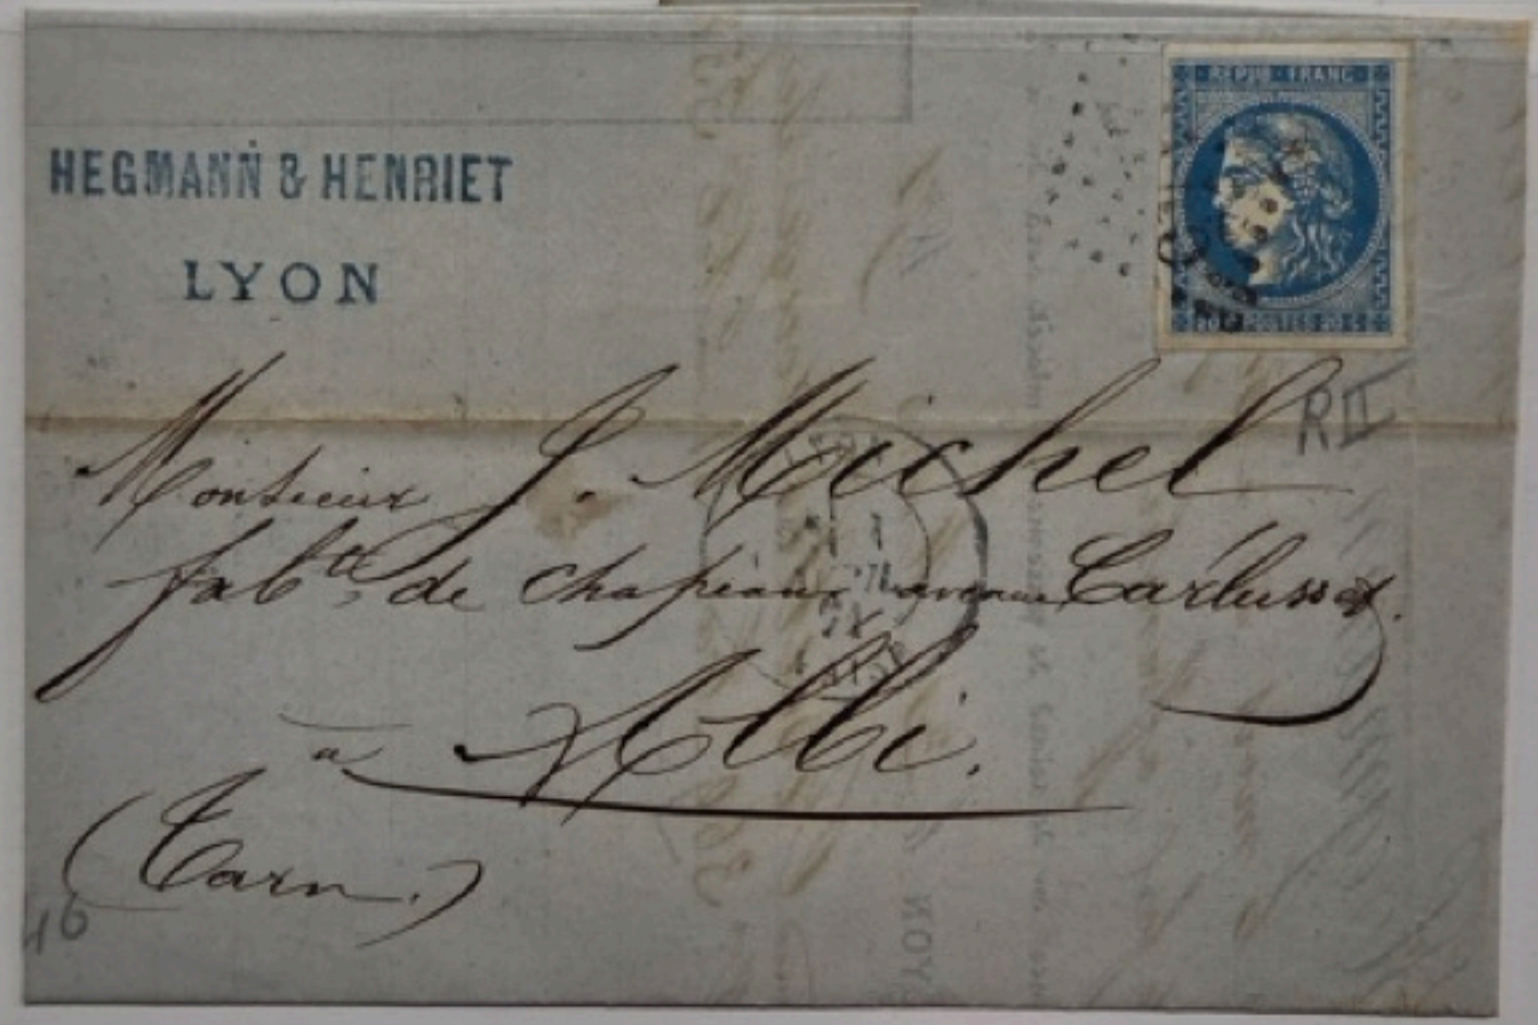 HEGMANN & HENRIET
LYON
REPUB · FRANC
20 c POSTES 20 c
RII
Monsieur J. Michel
fabt de chapeaux avenue
à Albi.
(Tarn.)